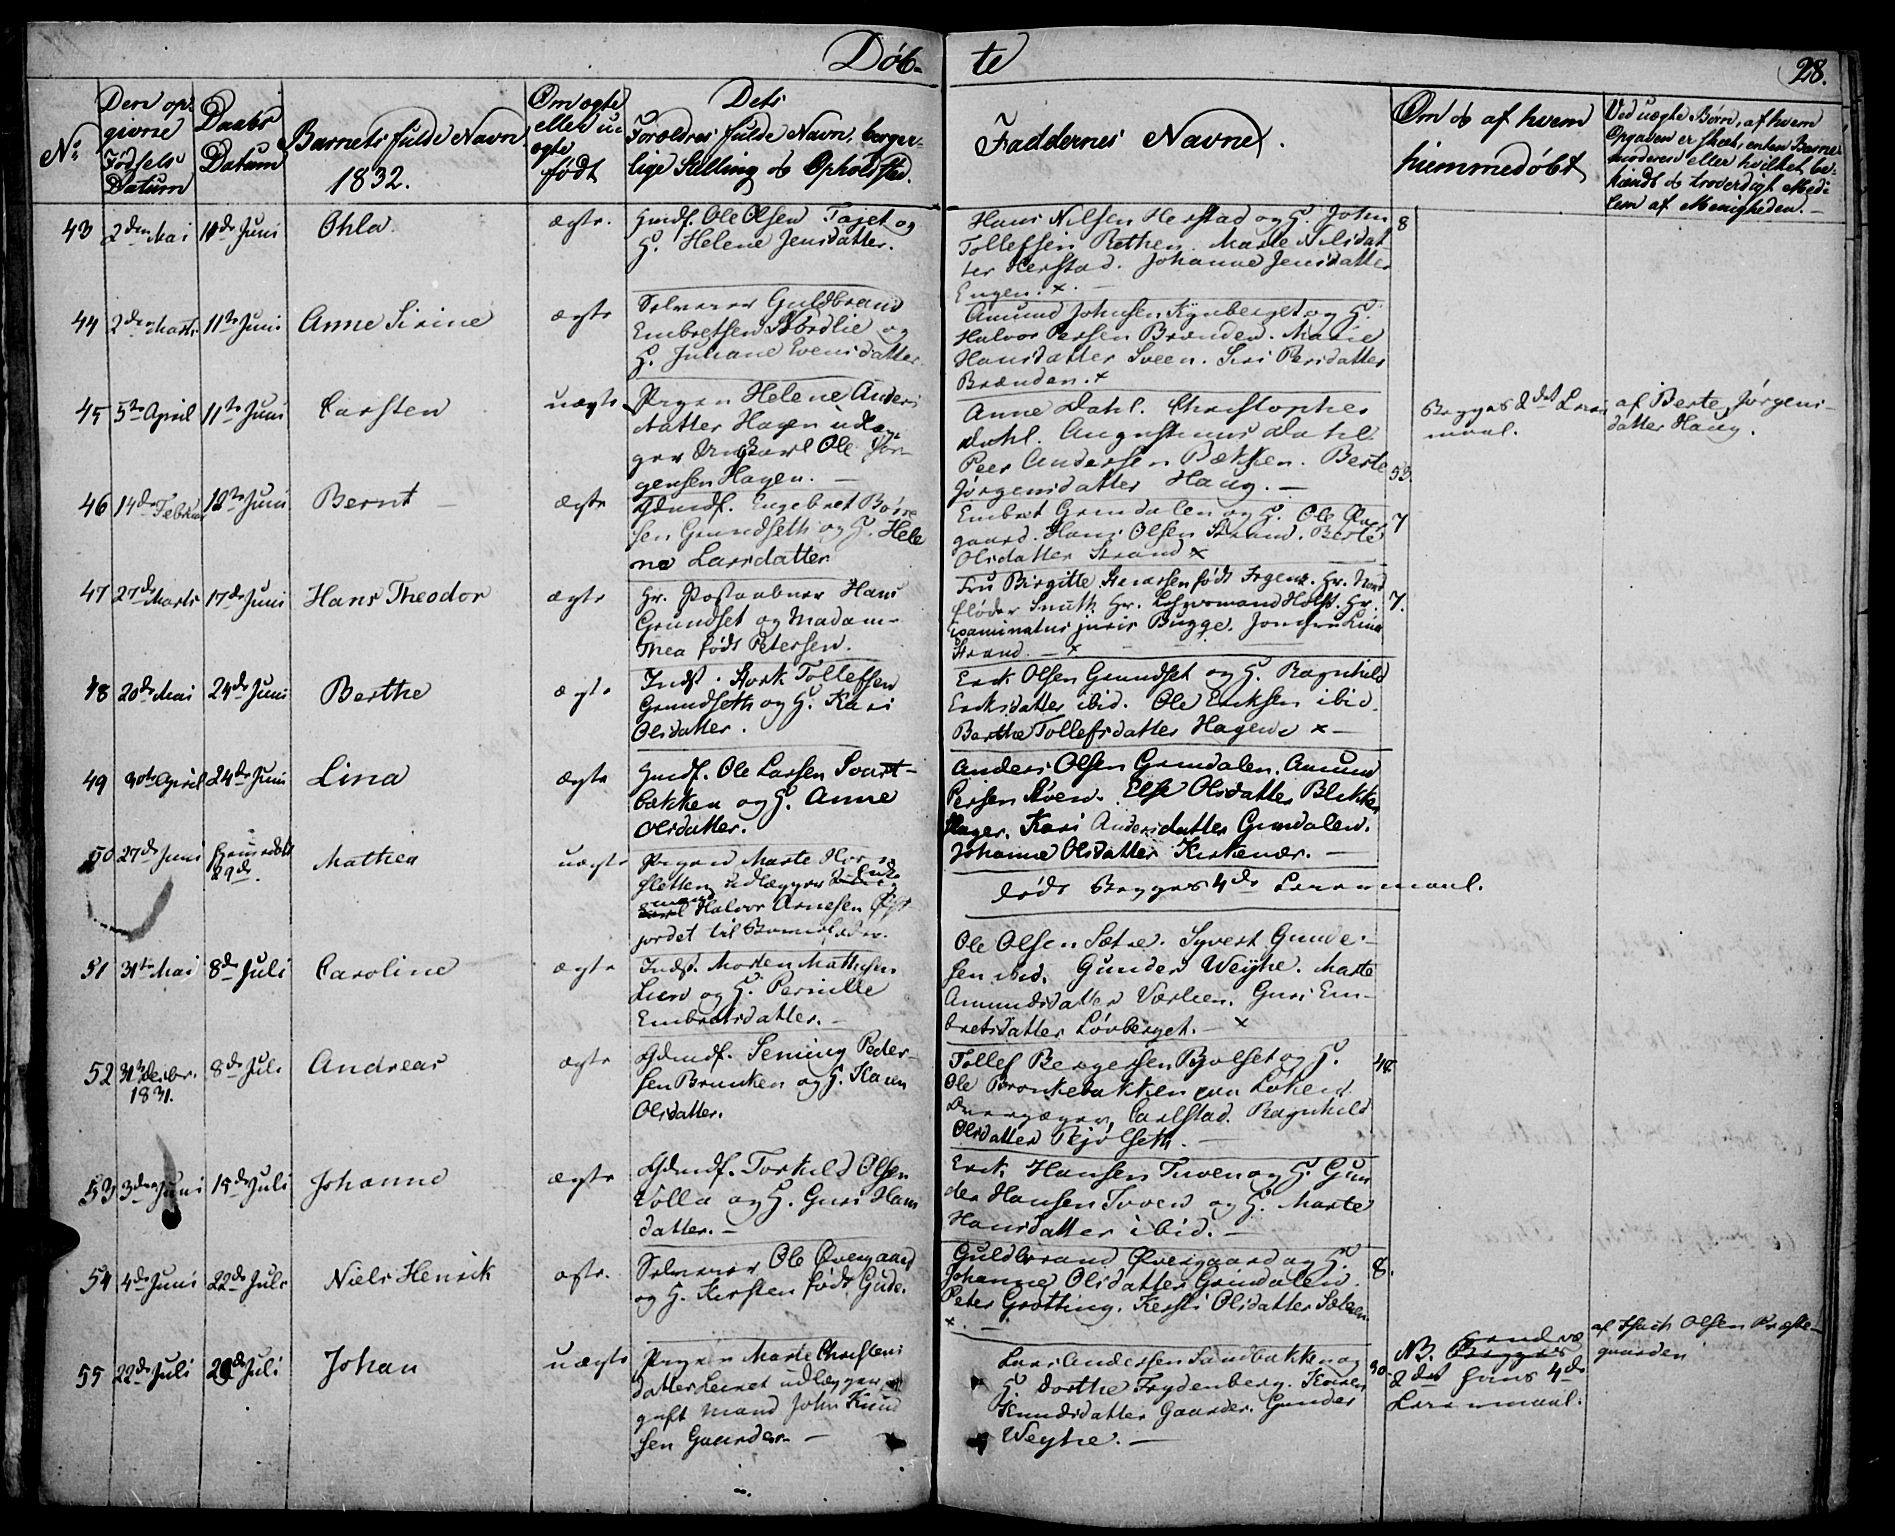 Døb-
te
28.
No
Den op-
givne
Fødsels
Datum
Daabs
Datum
Barnets fulde Navn
1832.
Om ægte
eller u-
ægte
født
Dets
Forældres fulde Navn, borger-
lige Stilling og Opholdsted.
Faddernes Navne.
Om og af hvem
hiemmedøbt
Ved uægte Børn, af hvem
Opgaven er skeet, enten Barne-
moderen eller hvilket be-
kiendt og troværdigt Med-
lem af Menigheden.
43 2den Mai 10de Juni
ægte.
Gmdf. Ole Olsen og
H. Helene Jensdatter.
Hans Nilsen Herstad og H. John
Tollefsen Rathen. Marte Nilsdat-
ter Herstad. Johanne Jensdatter
Engen. x
8
44 2de Marts 11te Juni Anne Sirine
ægte
Selveier Guldbrand
Embretsen og
H. Juliane Evensdatter
Amund Johnsen Kynberget og H.
Halvor Persen Brænden. Marie
Hansdatter Sveen. Siri Persdatter
Brænden. x
45 5te April 11te Juni Carsten
uægte
Pigen Helene Anders
datter Hagen udlæg-
ger Ungkarl Ole Jør-
gensen Hagen. —
Anne Dahl. Christopher
Dahl. Augustinus Dahl.
Peer Andersen Bækken. Berte
Jørgensdatter Haug. —
53.
Begges 2det Leier
maal.
af Berte Jørgens-
datter Haug.
46 14de Februar 12te Juni Bernt —
ægte
Gdmdf. Engebret
sen Grundseth og H. Hele
ne Larsdatter
Embret Grindalen og H. Ole
gaard. Hans Olsen Strand. Berte
Olsdatter Strand x
7
47 27de Marts 17de Juni Hans Theodor
ægte
Hr. Postaabner Hans
Grundset og Madam-
Thea født Petersen.
Fru Birgitte født Hr.
Smith Hr. Holst. Hr.
Examinatus juris Bugge. Jomfru Lina
Strand. — x
7.
48 20de Mai 24de Juni Berthe
ægte
Indst. Tollefsen
Grundseth og H. Kari
Olsdatter.
Erik Olsen Grundset og H. Ragnhild
Eriksdatter ibid. Ole Eriksen ibid.
Berthe Tollefsdatter Hagen x —
49 30te April 24de Juni Lina
ægte
Gmdf. Ole Larsen Svart-
bækken og H. Anne
Olsdatter.
Anders Olsen Grindalen. Amund
Persen Støen. Else Olsdatter Blikke
slager. Kari Andersdatter Grindalen.
Johanne Olsdatter Kirkenær. —
50 27de Juni hjemdøbt
29de. Mathea
uægte
Pigen Marte
sletten udlægger Enke
mand Halvor Arnesen
jordet til Barnefader.
død Begges 4de Leiermaal.
51 31te Mai 8de Juli Caroline
ægte
Indst. Morten Mathisen
Lien og H. Pernille
Embretsdatter. —
Ole Olsen Sætre. Syvert Gunder-
sen ibid. Gunder Weyhe. Marte
Amundsdatter Guri Em-
bretsdatter Løvberget. — x
52 31te Decbr.
1831. 8de Juli Andreas
ægte
Gdmdf. Seming Peder-
sen Brunken og H. Karen
Olsdatter.
Tollef Bergersen og H.
Ole Bronkebakken Løken
Carlstad. Ragnhild
Olsdatter —
48
53 3die Juni 15de Juli Johanne
ægte
Gdmdf. Torkild Olsen
Kolla og H. Guri Hans
datter. —
Erik Hansen Tuven og H. Gun
der Hansen Tuven og H. Marte
Hansdatter ibid. —
54 4de Juni 22de Juli Niels Henrik
ægte.
Selveier Ole Øvergaard
og H. Kirsten født Gude.
Guldbrand Øvergaard og H.
Johanne Olsdatter Grindalen.
Peter Grøtting. Kersti Olsdatter
x. —
8.
55 22de Juli 29de Juli Johan
uægte
Pigen Marte Christens
datter udlægger
gift Mand John Knud
sen Gaarder. —
Lars Andersen Sandbakken og
H. Dorthe Frydenberg. Karen
Knudsdatter Gaarder. Gunder
Weyhe. —
30
NB. Begges
2det hans 4de
Leiermaal.
af Olsen Præste-
gaarden